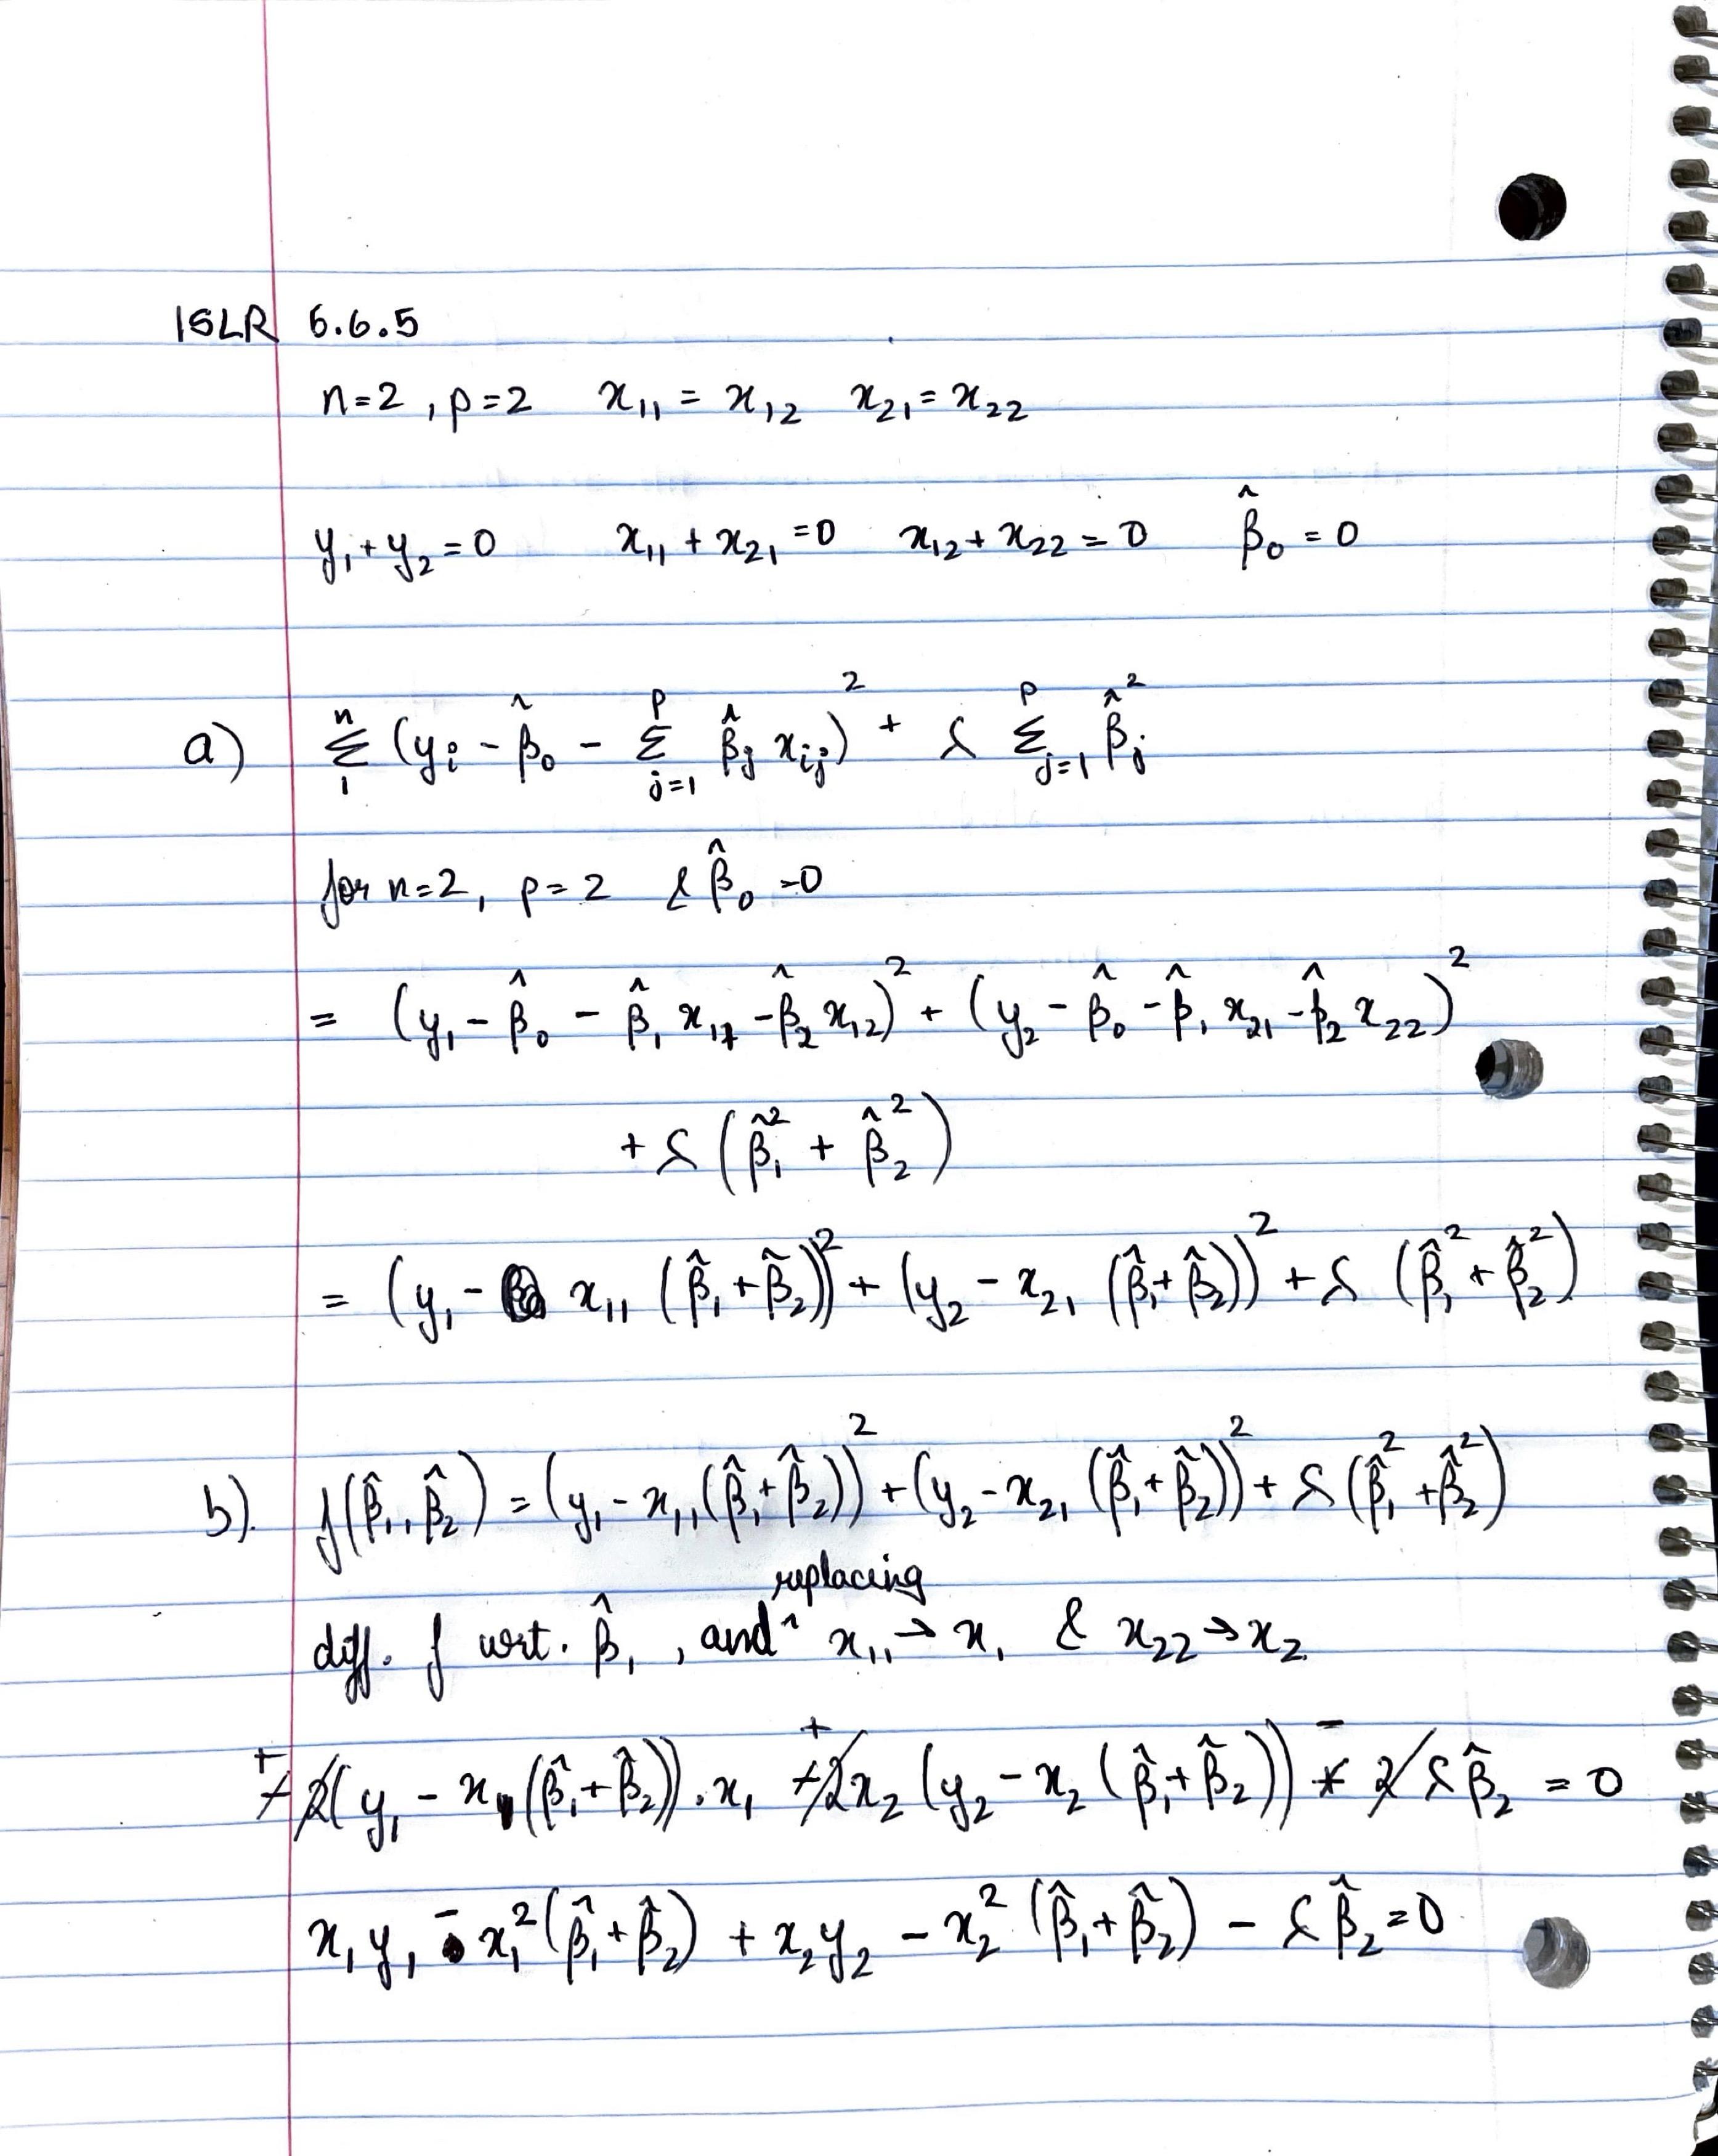 ISLR 6.6.5
n=2, p=2 x₁₁ = x₁₂ x₂₁ = x₂₂
y₁ + y₂ = 0 x₁₁ + x₂₁ = 0 x₁₂ + x₂₂ = 0 β̂₀ = 0
a) Σ₁ⁿ (yᵢ - β̂₀ - Σⱼ₌₁ᵖ β̂ⱼ xᵢⱼ)² + λ Σⱼ₌₁ᵖ β̂ⱼ²
for n=2, p=2 & β̂₀ = 0
= (y₁ - β̂₀ - β̂₁ x₁₁ - β̂₂ x₁₂)² + (y₂ - β̂₀ - β̂₁ x₂₁ - β̂₂ x₂₂)²
+ λ (β̂₁² + β̂₂²)
= (y₁ - x₁₁ (β̂₁ + β̂₂))² + (y₂ - x₂₁ (β̂₁ + β̂₂))² + λ (β̂₁² + β̂₂²)
b). f(β̂₁, β̂₂) = (y₁ - x₁₁ (β̂₁ + β̂₂))² + (y₂ - x₂₁ (β̂₁ + β̂₂))² + λ (β̂₁² + β̂₂²)
diff. f wrt. β̂₁, and replacing x₁₁ → x₁ & x₂₂ → x₂
+ 2(y₁ - x₁ (β̂₁ + β̂₂)).x₁ + 2x₂ (y₂ - x₂ (β̂₁ + β̂₂)) - 2 λ β̂₂ = 0
x₁y₁ - x₁² (β̂₁ + β̂₂) + x₂y₂ - x₂² (β̂₁ + β̂₂) - λ β̂₂ = 0